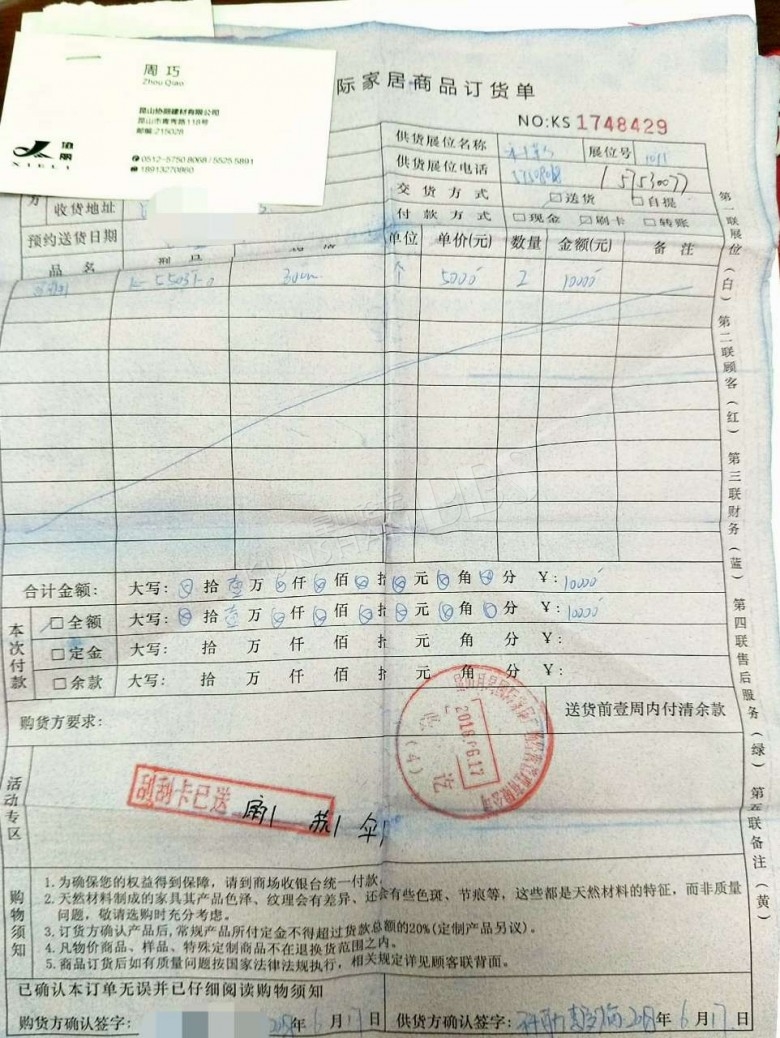 周 巧
Zhou Qiao
昆山协丽建材有限公司
昆山市青秀路118号
邮编:215028
0512-5750.8068/5525.5891
18913270860
协丽
XIELI
际家居商品订货单
NO:KS 1748429
供货展位名称
展位号
供货展位电话 57530077
方 收货地址
交货方式 □送货 □自提
预约送货日期
付款方式 □现金 □刷卡 □转账
品名 单位 单价(元) 数量 金额(元) 备注
30cm 个 5000 2 10000
合计金额: 大写: 拾 壹 万 仟 佰 拾 元 角 分 ¥: 10000
本次付款
□全额 大写: 拾 壹 万 仟 佰 拾 元 角 分 ¥: 10000
□定金 大写: 拾 万 仟 佰 拾 元 角 分 ¥:
□余款 大写: 拾 万 仟 佰 拾 元 角 分 ¥:
购货方要求:
送货前壹周内付清余款
2018.06.17
(4)
讫
活动专区
刮刮卡已送
伞
购物须知
1. 为确保您的权益得到保障，请到商场收银台统一付款。
2. 天然材料制成的家具其产品色泽、纹理会有差异、还会有些色斑、节痕等，这些都是天然材料的特征，而非质量
问题，敬请选购时充分考虑。
3. 订货方确认产品后,常规产品所付定金不得超过货款总额的20%(定制产品另议)。
4. 凡物价商品、样品、特殊定制商品不在退换货范围之内。
5. 商品订货后如有质量问题按国家法律法规执行，相关规定详见顾客联背面。
已确认本订单无误并已仔细阅读购物须知
购货方确认签字: 2018年6月17日
供货方确认签字: 2018年6月17日
第一联展位(白) 第二联顾客(红) 第三联财务(蓝) 第四联售后服务(绿) 第五联备注(黄)